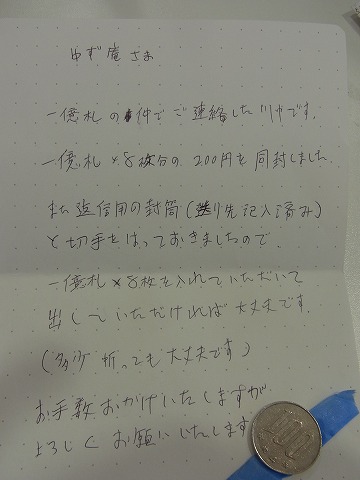 ゆず庵さま
一億札の件でご連絡した
一億札×8枚分の200円を同封しました
また返信用の封筒(送り先記入済み)
と切手をはっておきましたので、
一億札×8枚を入れていただいて
出していただければ大丈夫です。
(多少折っても大丈夫です)
お手数おかけいたしますが
よろしくお願いいたします
100